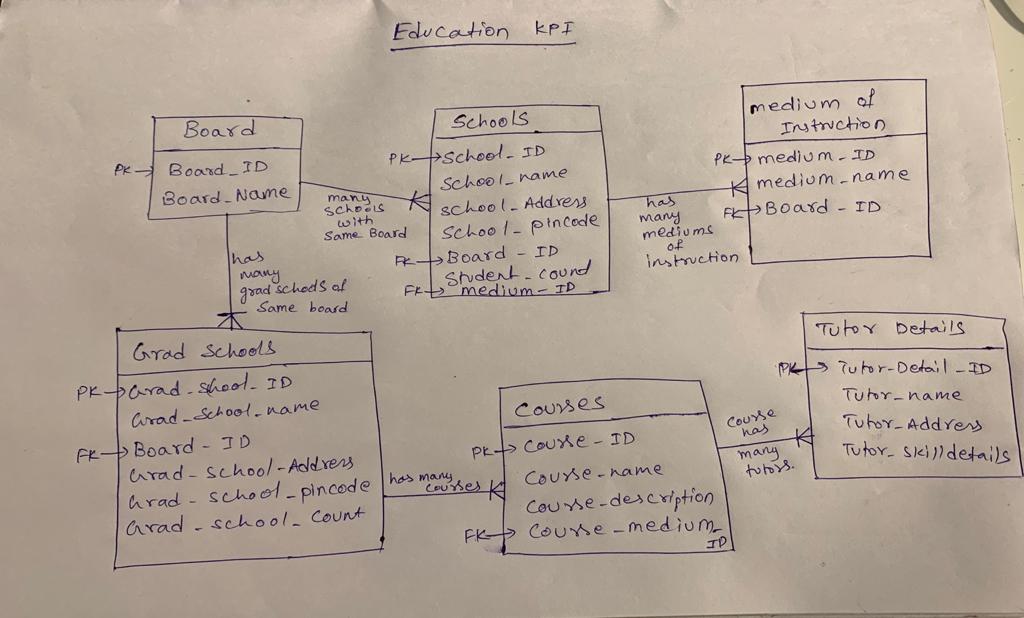 Education KPI
Board
PK Board_ID
Board_Name
many
schools
with
same Board
Schools
PK School_ID
School_name
School_Address
School_pincode
FK Board_ID
Student_cound
FK medium_ID
has
many
mediums
of
instruction
medium of
Instruction
PK medium_ID
medium_name
FK Board_ID
has
many
grad schools of
same board
Grad Schools
PK Grad_shool_ID
Grad_School_name
FK Board_ID
Grad_School_Address
Grad_school_pincode
Grad_school_Count
has many
courses
Courses
PK Course_ID
Course_name
Course_description
FK Course_medium_
ID
Course
has
many
tutors.
Tutor Details
PK Tutor_Detail_ID
Tutor_name
Tutor_Address
Tutor_skilldetails